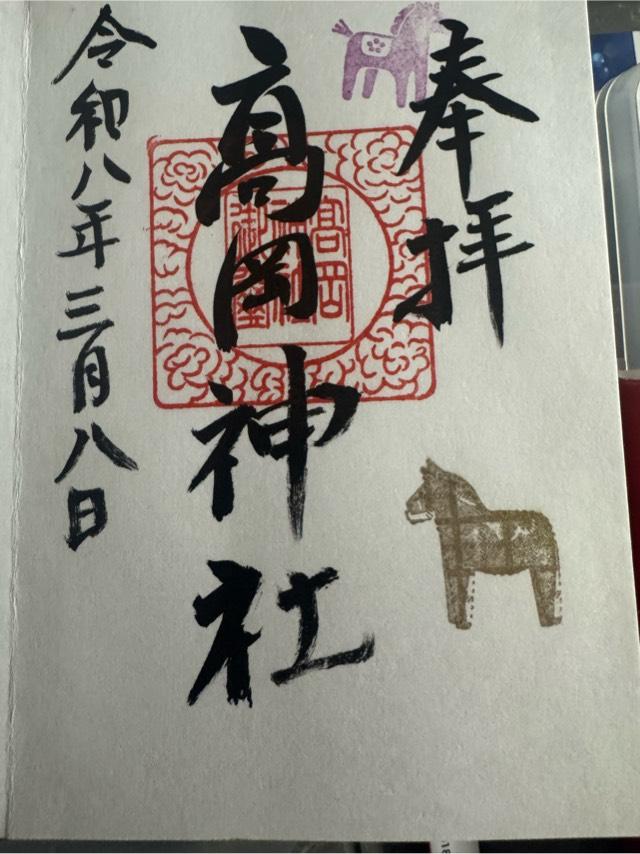 奉拝
高岡神社
高岡
令和八年三月八日